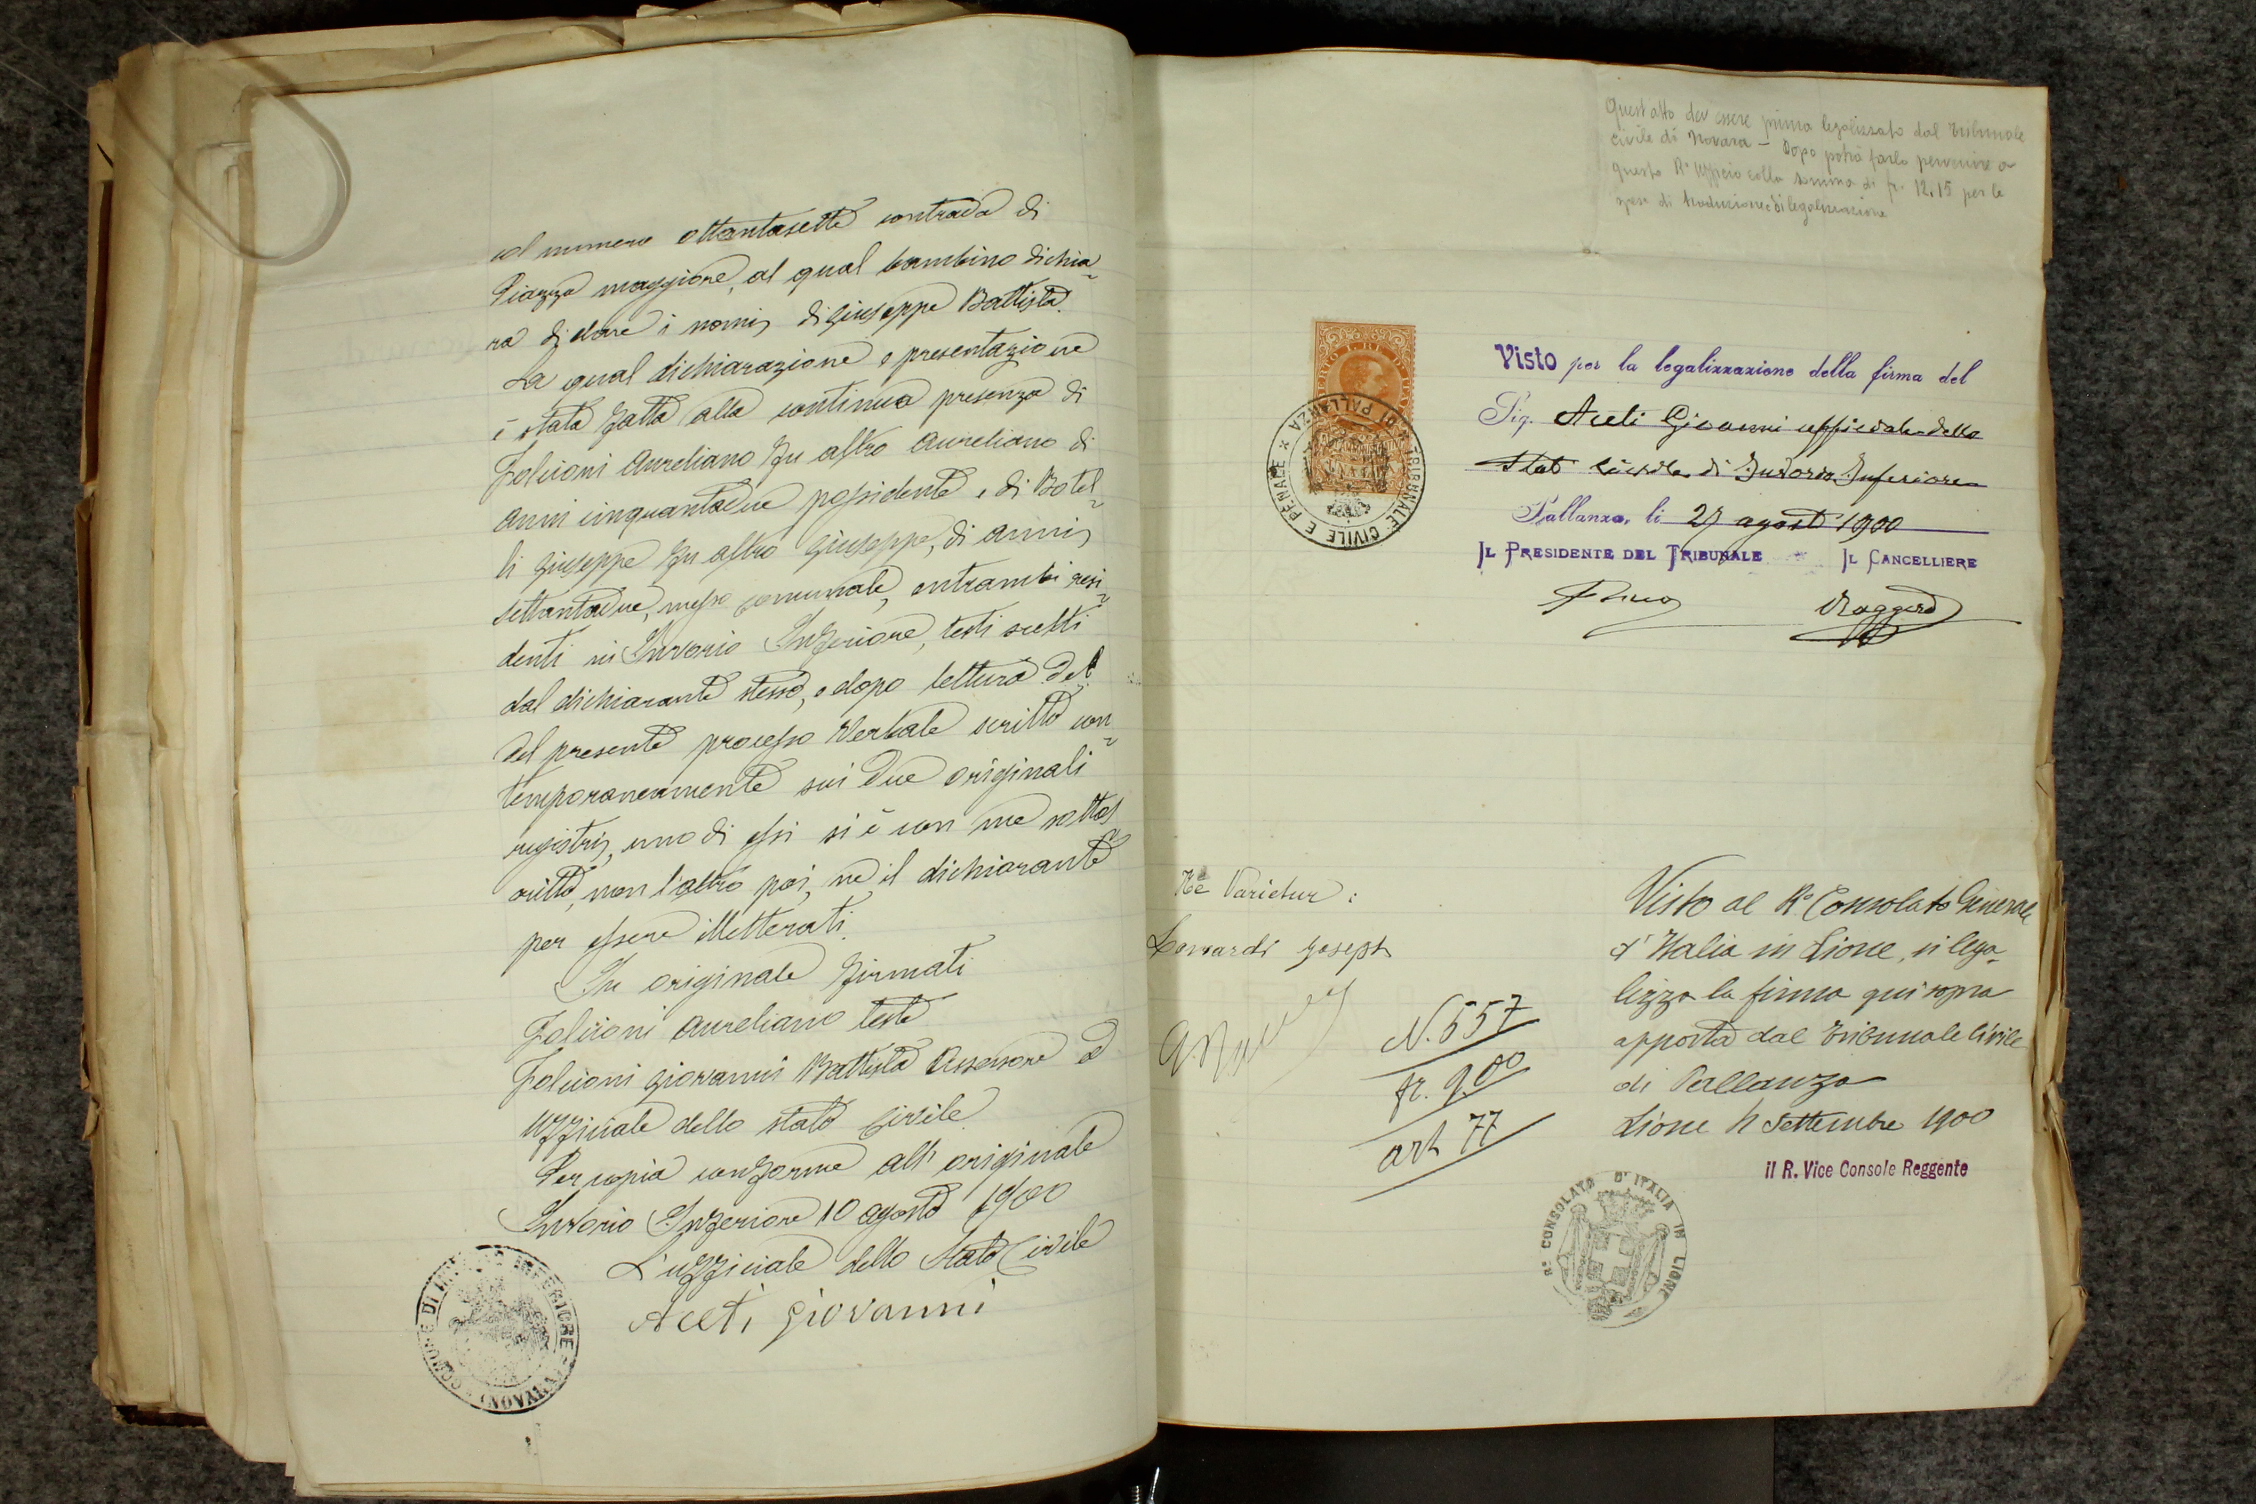 al numero ottantasette contrada di
Piazza maggiore, al qual bambino dichia-
ra di dare i nomi, di Giuseppe Battista.
La qual dichiarazione e presentazione
è stata fatta alla continua presenza di
Folcioni Aureliano fu altro Aureliano di
anni cinquantadue possidente, e di Botel-
li Giuseppe fu altro Giuseppe, di anni,
settantadue, messo comunale, entrambi resi-
denti in Invorio Inferiore, testi scelti
dal dichiarante stesso, e dopo lettura del
del presente processo verbale scritto con-
temporaneamente sui due originali
registri, uno di essi si è con me sottos
critto, non l'altro poi, ne il dichiarante
per essere illetterati.
In originale firmati
Folcioni Aureliano teste
Folcioni Giovanni Battista Assessore ed
Ufficiale dello stato Civile
Per copia conforme all' originale
Invorio Inferiore 10 agosto 1900
L'uffiziale dello Stato Civile
Aceti Giovanni
COMUNE DI INFERIORE (NOVARA)
Quest'atto dev'essere prima legalizzato dal Tribunale
civile di Novara - Dopo potrà farlo pervenire a
questo R° Ufficio colla somma di fr. 12.15 per le
spese di traduzione e di legalizzazione
UMBERTO I RE D'ITALIA
TRIBUNALE CIVILE E PENALE DI PALLANZA
Visto per la legalizzazione della firma del
Sig. Aceti Giovanni uffiziale dello
Stato Civile di Invorio Inferiore
Pallanza, li 27 agosto 1900
IL PRESIDENTE DEL TRIBUNALE IL CANCELLIERE
Ne Varietur :
Lovardi Joseph
N. 557
fr. 9.00
art 77
Visto al R° Consolato Generale
d'Italia in Lione, si lega-
lizza la firma qui sopra
apposta dal Tribunale Civile
di Pallanza
Lione Settembre 1900
il R. Vice Console Reggente
R° CONSOLATO D'ITALIA IN LIONE